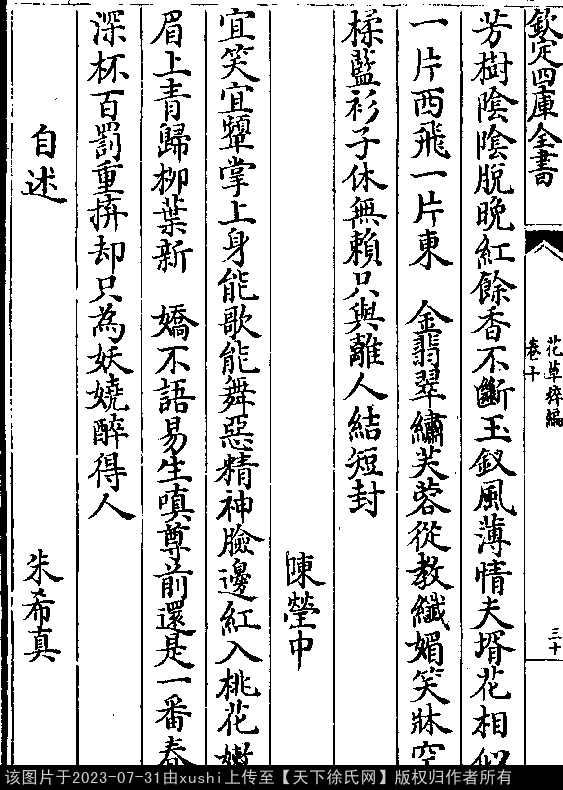 欽定四庫全書
花草稡編
卷十
三十
芳樹陰陰脫晚紅餘香不斷玉釵風薄情夫壻花相似
一片西飛一片東　金翡翠繡芙蓉從教纖媚笑牀空
揉藍衫子休無賴只與離人結短封
陳瑩中
宜笑宜顰掌上身能歌能舞惡精神臉邊紅入桃花嫩
眉上青歸柳葉新　嬌不語易生嗔尊前還是一番春
深杯百罰重拚却只為妖嬈醉得人
自述
朱希真
该图片于2023-07-31由xushi上传至【天下徐氏网】版权归作者所有